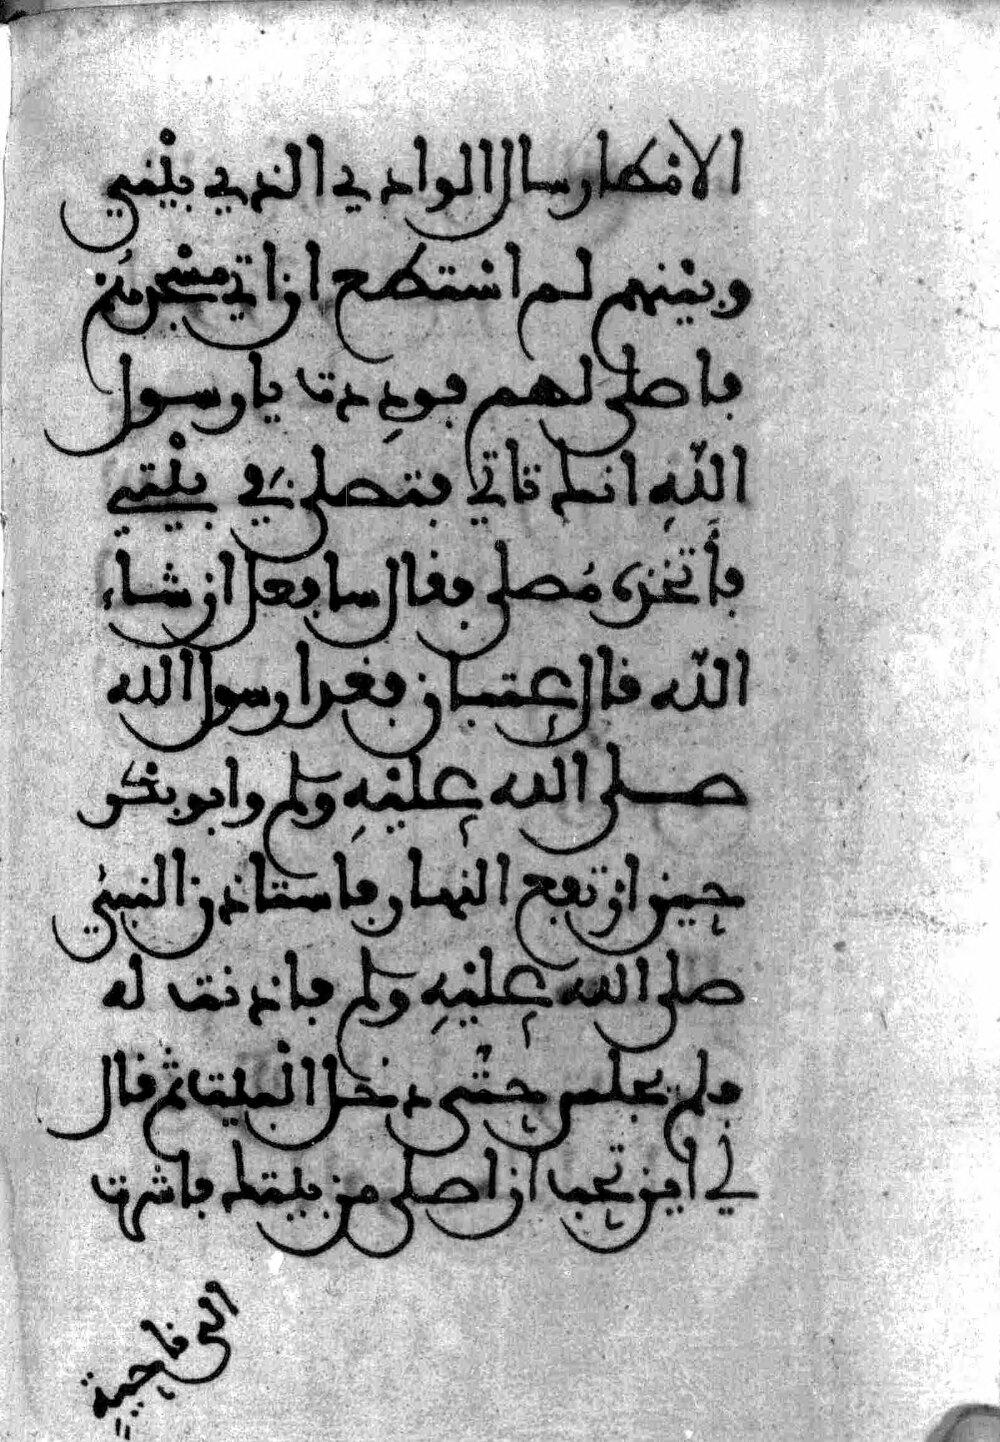 الامطار سال الوادي الذي بيني
وبينهم لم استطع ان اتي مسجدهم
فاصلى لهم فوددت يا رسول
اللّٰهِ انك تاتي فتصلى في بيتي
فأتخذه مُصلى فقال سافعل ان شاء
اللّٰه قال عتبان فغدا رسول الله
صلى الله عليْهِ وسلم وابو بكر
حين ارتفع النهار فاستاذن النبي
صلى الله عليْهِ وسلم فاذنت له
فلم يجلس حتّى دخل البيت ثم قال
لي اين تحب ان اصلى من بيتك فاشرت
الى ناحية